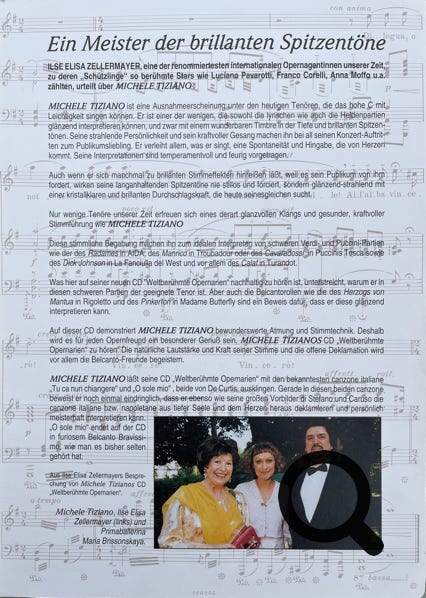 con anima
Di-legua, o
Ein Meister der brillanten Spitzentöne
ILSE ELISA ZELLERMAYER, eine der renommiertesten internationalen Opernagentinnen unserer Zeit,
zu deren „Schützlinge" so berühmte Stars wie Luciano Pavarotti, Franco Corelli, Anna Moffo u.a.
zählten, urteilt über MICHELE TIZIANO:
MICHELE TIZIANO ist eine Ausnahmeerscheinung unter den heutigen Tenören, die das hohe C mit
Leichtigkeit singen können. Er ist einer der wenigen, die sowohl die lyrischen wie auch die Heldenpartien
glänzend interpretieren können, und zwar mit einem wunderbaren Timbre in der Tiefe und brillanten Spitzen-
tönen. Seine strahlende Persönlichkeit und sein kraftvoller Gesang machen ihn bei all seinen Konzert-Auftrit-
ten zum Publikumsliebling. Er verleiht allem, was er singt, eine Spontaneität und Hingabe, die von Herzen
kommt. Seine Interpretationen sind temperamentvoll und feurig vorgetragen.
Auch wenn er sich manchmal zu brillanten Stimmeffekten hinreißen läßt, weil es sein Publikum von ihm
fordert, wirken seine langanhaltenden Spitzentöne nie stillos und forciert, sondern glänzend-strahlend mit
einer kristallklaren und brillanten Durchschlagskraft, die heute seinesgleichen sucht.
Nur wenige Tenöre unserer Zeit erfreuen sich eines derart glanzvollen Klangs und gesunder, kraftvoller
Stimmführung wie MICHELE TIZIANO
Diese stimmliche Begabung machen ihn zum idealen Interpreten von schweren Verdi- und Puccini-Partien
wie der des Radames in AIDA, des Manrico in Troubadour oder des Cavaradossi in Puccinis Tosca sowie
des Dick Johnson in La Fanciulla del West und vor allem des Calaf in Turandot.
Was hier auf seiner neuen CD "Weltberühmte Opernarien" nachhaltig zu hören ist, unterstreicht, warum er in
diesen schweren Partien der geeignete Tenor ist. Aber auch die Belcantorollen wie die des Herzogs von
Mantua in Rigoletto und des Pinkerton in Madame Butterfly sind ein Beweis dafür, dass er diese glänzend
interpretieren kann.
Auf dieser CD demonstriert MICHELE TIZIANO bewunderswerte Atmung und Stimmtechnik. Deshalb
wird es für jeden Opernfreund ein besonderer Genuß sein, MICHELE TIZIANOS CD „Weltberühmte
Opernarien" zu hören. Die natürliche Lautstärke und Kraft seiner Stimme und die offene Deklamation wird
vor allem die Belcanto-Freunde begeistern.
rò!
Vin. ce. rò!
MICHELE TIZIANO läßt seine CD „Weltberühmte Opernarien" mit den bekanntesten canzone italiane
„Tu ca nun chiangere" und „O sole mio" , beide von De Curtis, ausklingen. Gerade in diesen beiden canzone
beweist er noch einmal eindringlich, dass er ebenso wie seine großen Vorbilder di Stefano und Caruso die
canzone italiane bzw. napoletane aus tiefer Seele und dem Herzen heraus deklamieren und persönlich
meisterhaft interpretieren kann.
„O sole mio" endet auf der CD
in furiosem Belcanto Bravissi-
mo, wie man es bisher selten
gehört hat.
Aus Ilse Elisa Zellermayers Bespre-
chung von Michele Tizianos CD
„Weltberühmte Opernarien".
Michele Tiziano, Ilse Elisa
Zellermayer (links) und
Primaballerina
Maria Brissonskaya.
a tempo